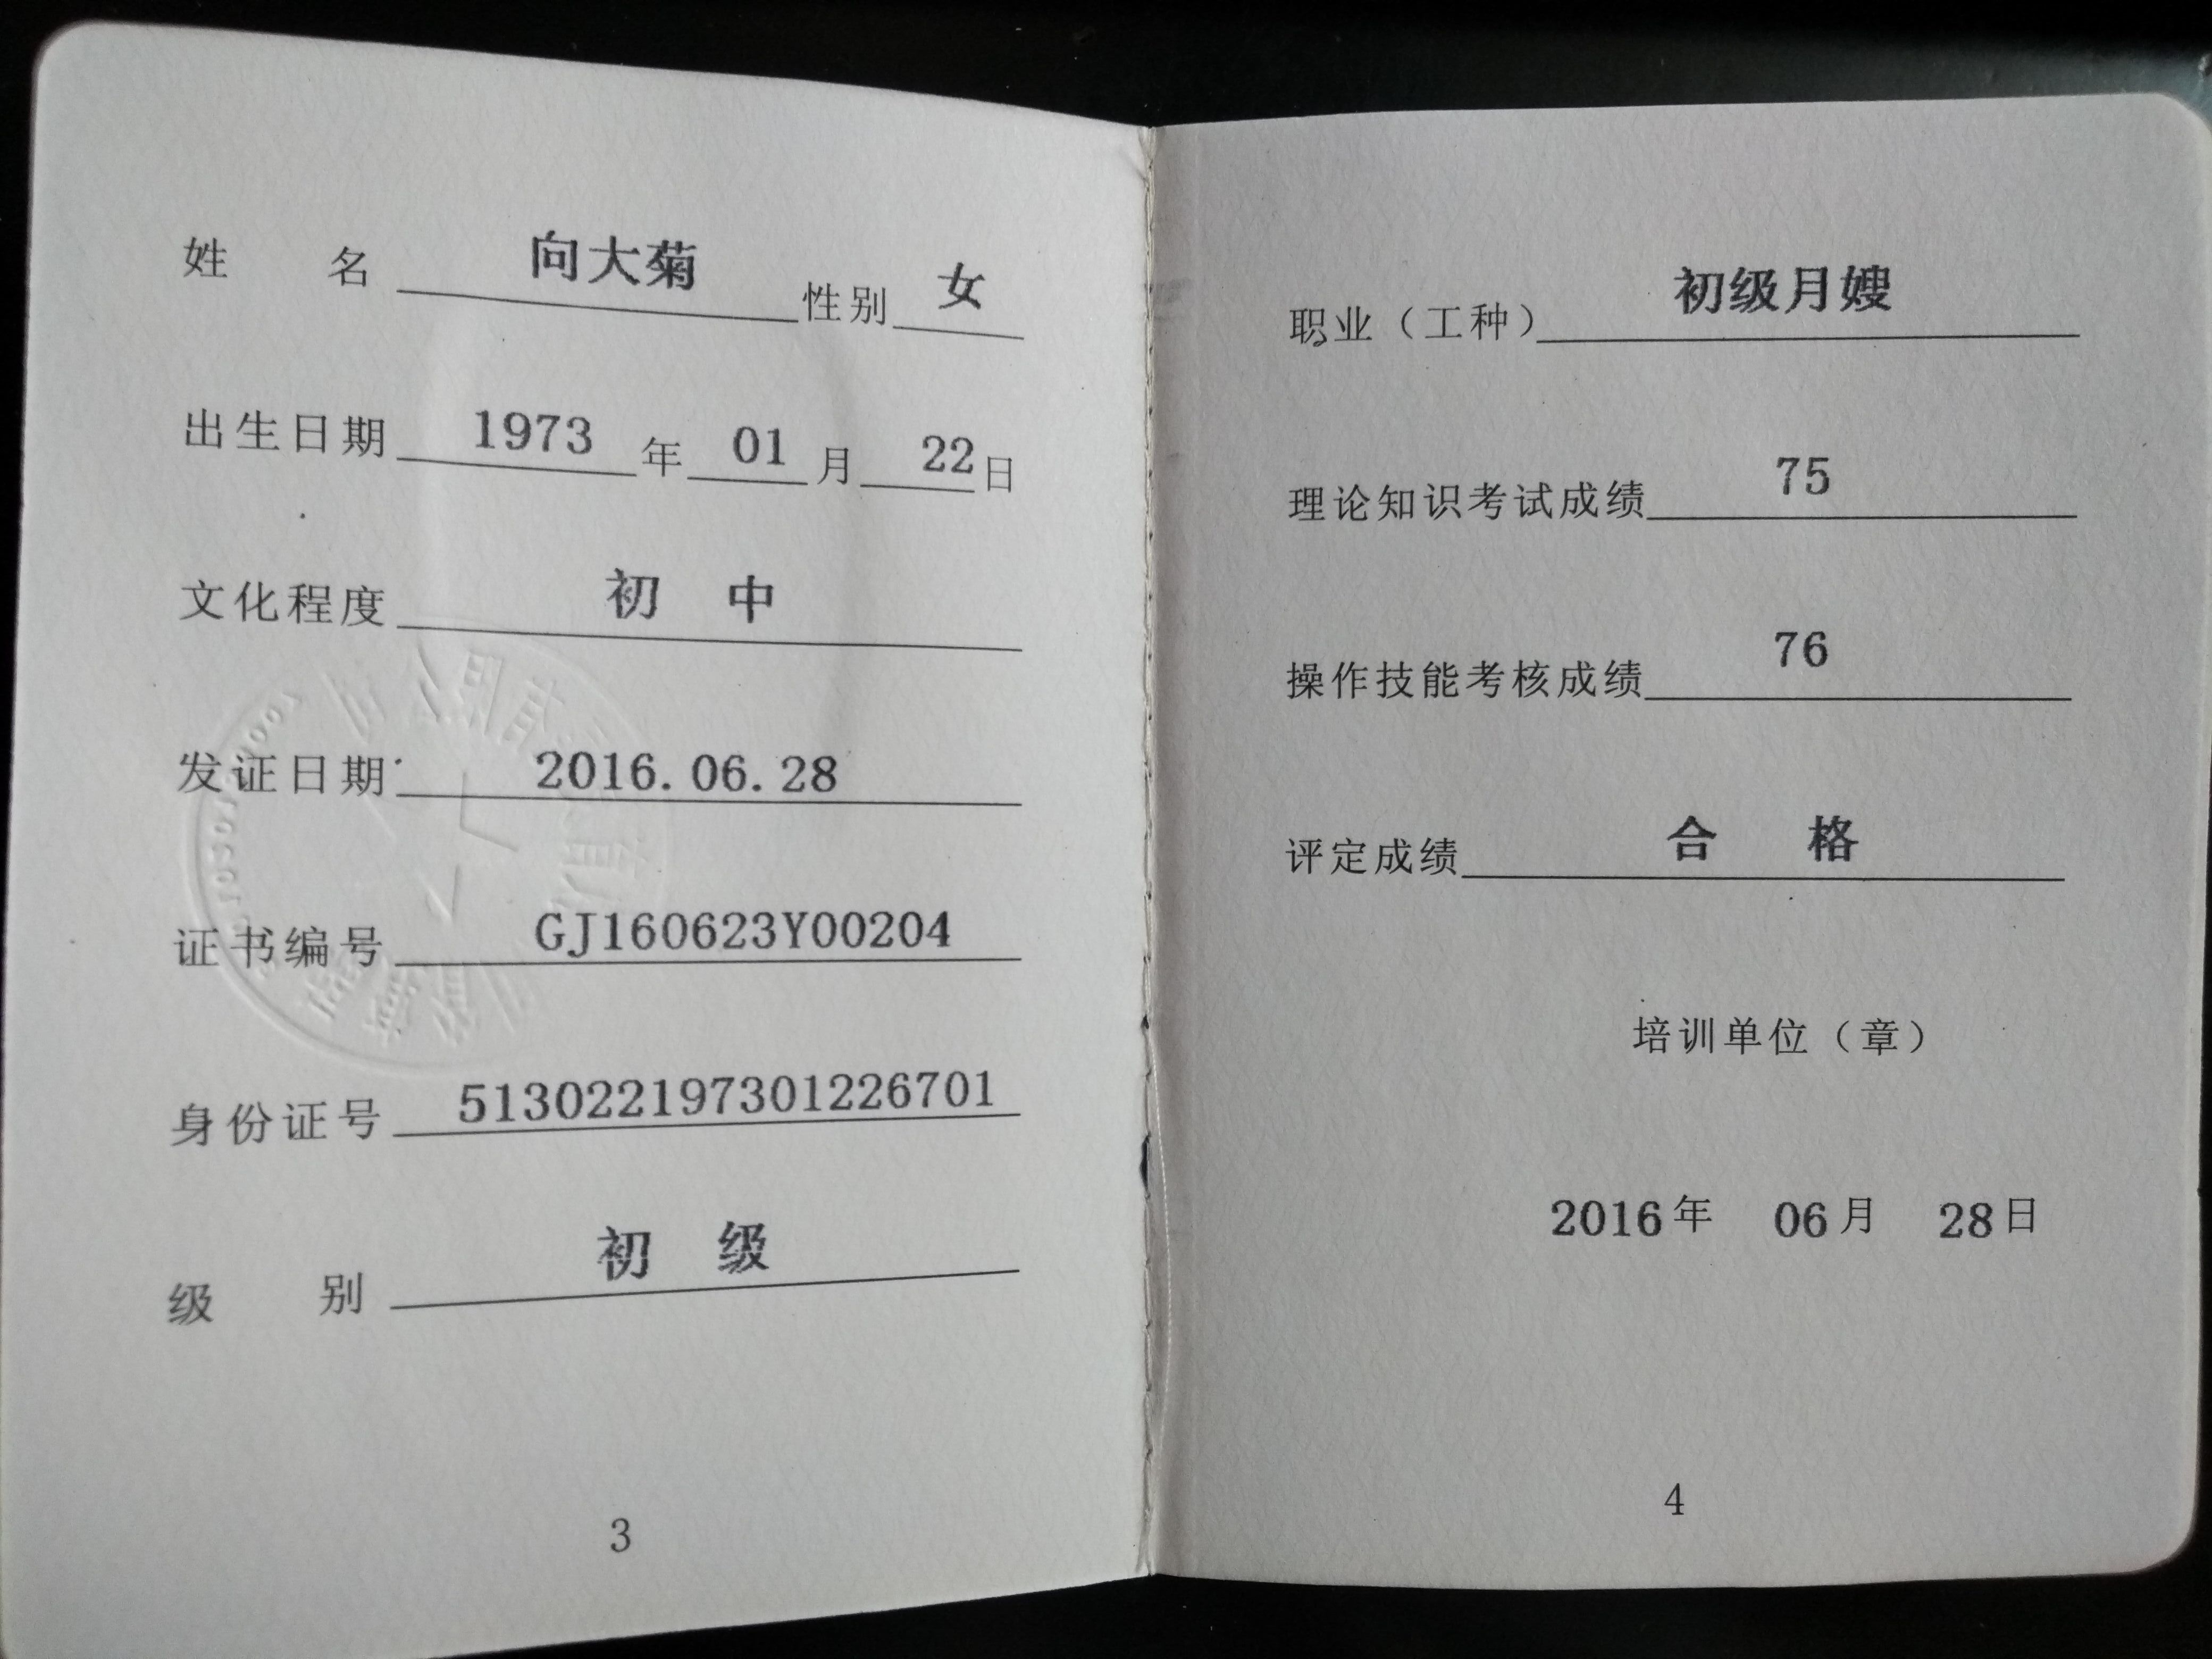 姓 名 向大菊 性别 女
出生日期 1973 年 01 月 22 日
文化程度 初 中
发证日期 2016.06.28
证书编号 GJ160623Y00204
身份证号 513022197301226701
级 别 初 级
3
职业（工种） 初级月嫂
理论知识考试成绩 75
操作技能考核成绩 76
评定成绩 合 格
培训单位（章）
2016 年 06 月 28 日
4